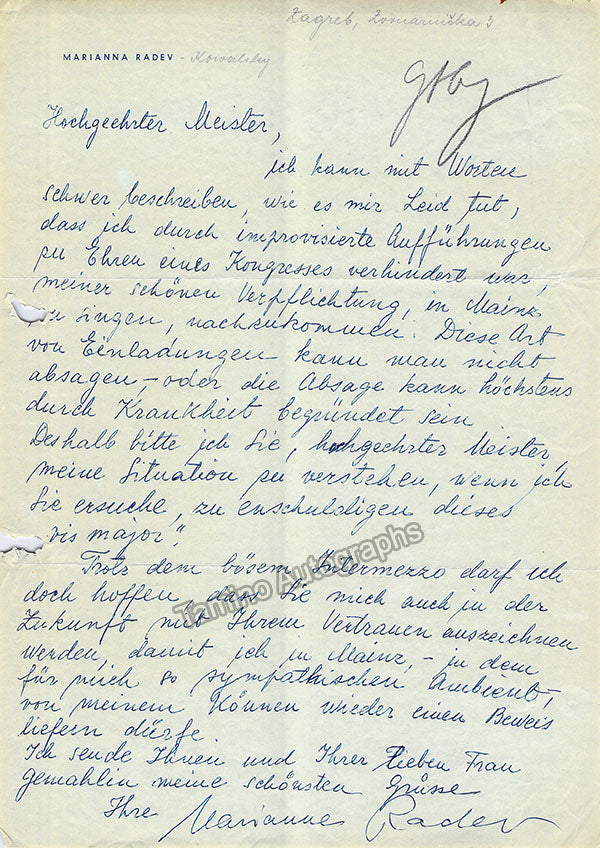 Zagreb, Zvonarnička 3
MARIANNA RADEV - Kowalsky
Hochgeehrter Meister,
ich kann mit Worten
schwer beschreiben, wie es mir Leid tut,
dass ich durch improvisierte Aufführungen
zu Ehren eines Kongresses verhindert war,
meiner schönen Verpflichtung, in Mainz
zu singen, nachzukommen. Diese Art
von Einladungen kann man nicht
absagen – oder die Absage kann höchstens
durch Krankheit begründet sein
Deshalb bitte ich Sie, hochgeehrter Meister,
meine Situation zu verstehen, wenn ich
Sie ersuche, zu enschuldigen dieses
„vis major".
Trotz dem bösem Intermezzo darf ich
doch hoffen, dass Sie mich auch in der
Zukunft mit Ihrem Vertrauen auszeichnen
werden, damit ich in Mainz, – in dem
für mich so sympathischen Ambient, –
von meinem Können wieder einen Beweis
liefern dürfe.
Ich sende Ihnen und Ihrer lieben Frau
gemahlin meine schönsten Grüsse
Ihre Marianne Radev
Tamino Autographs